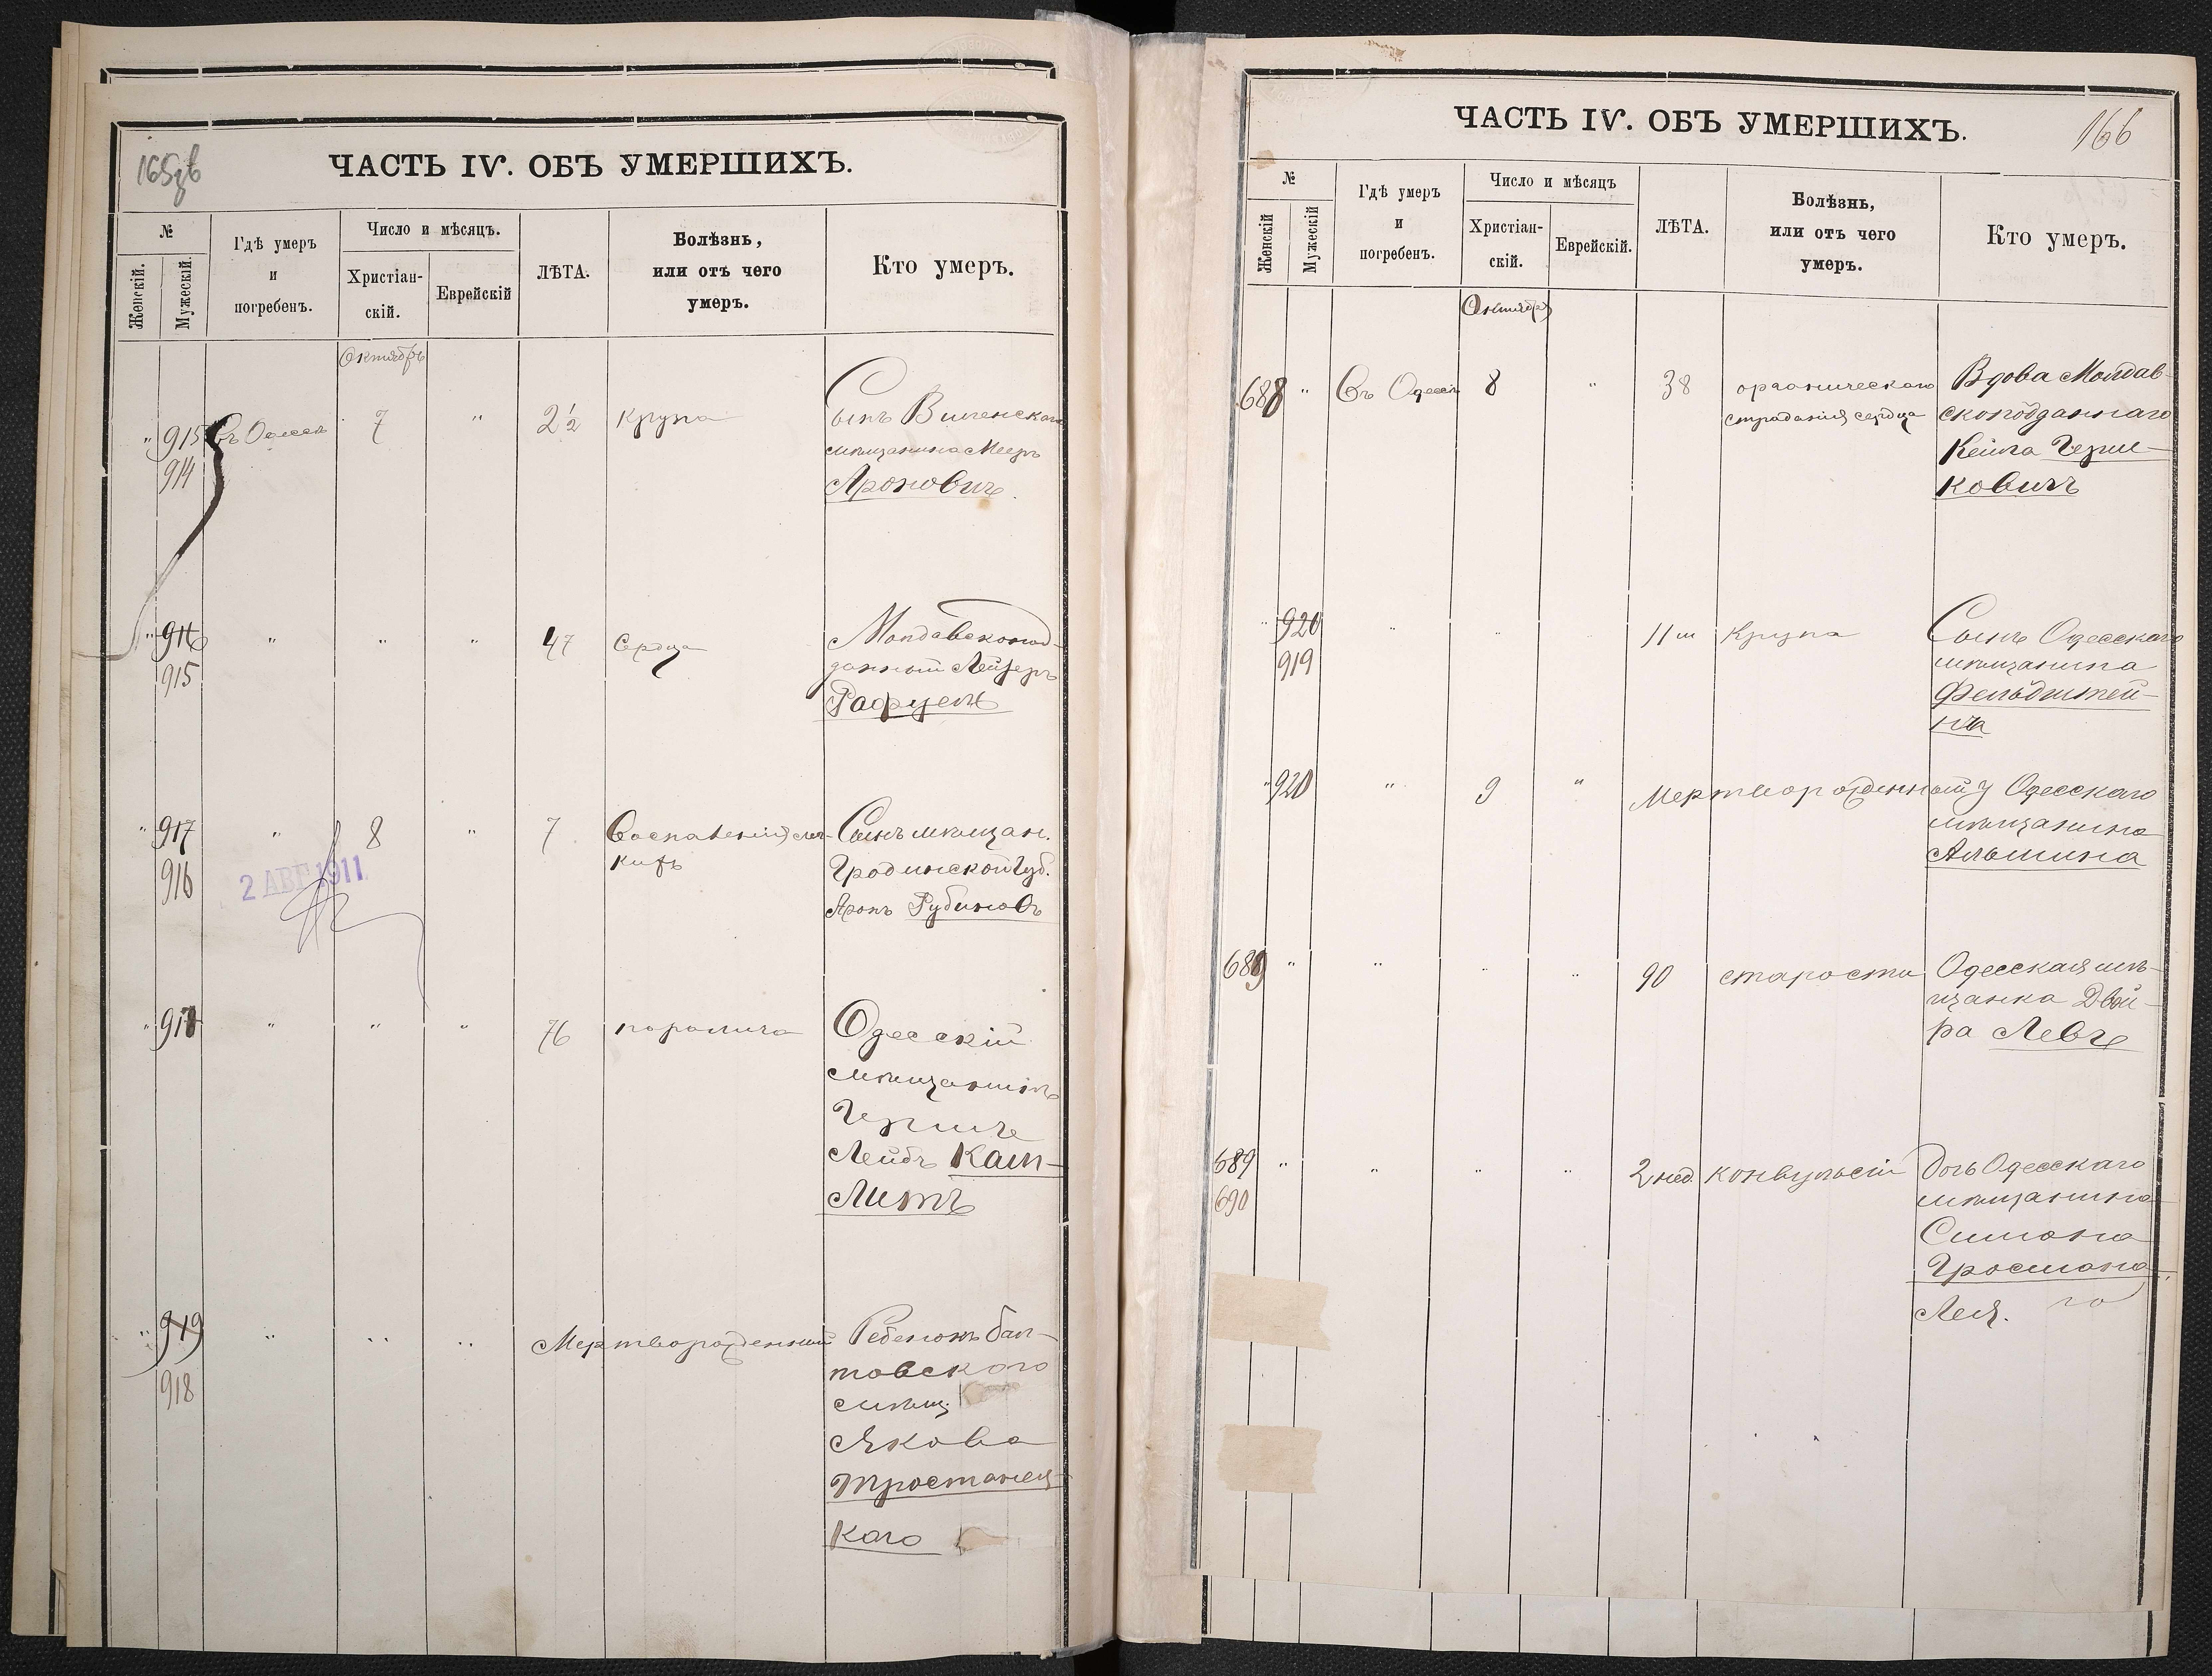 165об
ЧАСТЬ IV. ОБЪ УМЕРШИХЪ.
№
Женскій.
Мужескій.
Гдѣ умеръ
и
погребенъ.
Число и мѣсяцъ.
Христіан-
скій.
Еврейскій
ЛѢТА.
Болѣзнь,
или отъ чего
умеръ.
Кто умеръ.
Октябрь
" 915 Въ Одессѣ 7 " 2½ крупа
914
Сынъ Виленскаго
мѣщанина Мееръ
Ароновичъ.
" 916 " " " 47 Сердца
915
Молдавскопод-
данный Лейзеръ
Рафуелъ
" 917 " 8 " 7 Воспаленія лег-
кихъ
916
2 АВГ 1911
Сынъ мѣщан.
Гродненской Губ.
Аронъ Рубиновъ
" 917 " " " 76 паралича
Одесскій
мѣщанинъ
Гершъ
Лейбъ Кап-
литъ
" 919 " " " Мертворожденный
918
Ребенокъ Бал-
товского
мѣщ.
Якова
Тростанец-
каго
ЧАСТЬ IV. ОБЪ УМЕРШИХЪ.
166
№
Женскій
Мужескій
Гдѣ умеръ
и
погребенъ.
Число и мѣсяцъ
Христіан-
скій.
Еврейскій.
ЛѢТА.
Болѣзнь,
или отъ чего
умеръ.
Кто умеръ.
Октября
688 " Въ Одессѣ 8 " 38 органическаго
страданія сердца
Вдова Молдав-
скоподданнаго
Кейла Герш-
ковичъ
" 920 " " 11 м Крупа
919
Сынъ Одесскаго
мѣщанина
Фельдштей-
на
" 920 " 9 " Мертворожденный у Одесского
мѣщанина
Альшина
689 " " " " 90 старости
Одесская мѣ-
щанка Двой-
ра Левъ
689 " " " " 2 нед. конвульсіи
690
Дочь Одесскаго
мѣщанина
Симона
Гросмана
Лея.